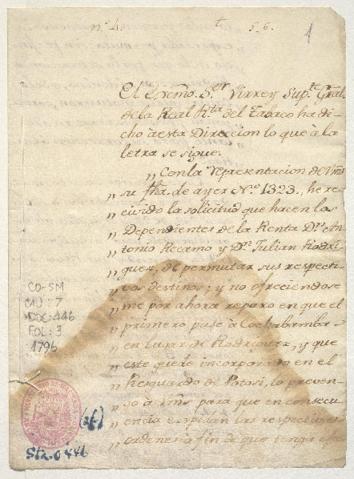 nº 4
5. 6.
1
El Excmo. Sor. Virrey Supte. Gral.
de la Real Rta. del Tabaco ha di-
cho à esta Direccion lo que à la
letra se sigue.
"Con la representacion de Vms
"su fha. de ayer Nº 1323, he re-
"civido la solicitud que hacen los
"Dependientes de la Renta Dn. An-
"tonio Recamo y Dn. Julian Rodri-
"guez, de permutar sus respecti-
"vos Destinos; y no ofreciendose
"me por ahora reparo en que el
"primero pase à Cochabamba
"en lugar de Rodriguez, y que
"este quede incorporado en el
"Resguardo de Potosi, lo preven-
"go à Vms para que en consecu-
"encia expidan las respectivas
"ordenes à fin de que tenga
CO-SM
CAJ: 7
DOC: 446
FOL: 3
1796
(2f)